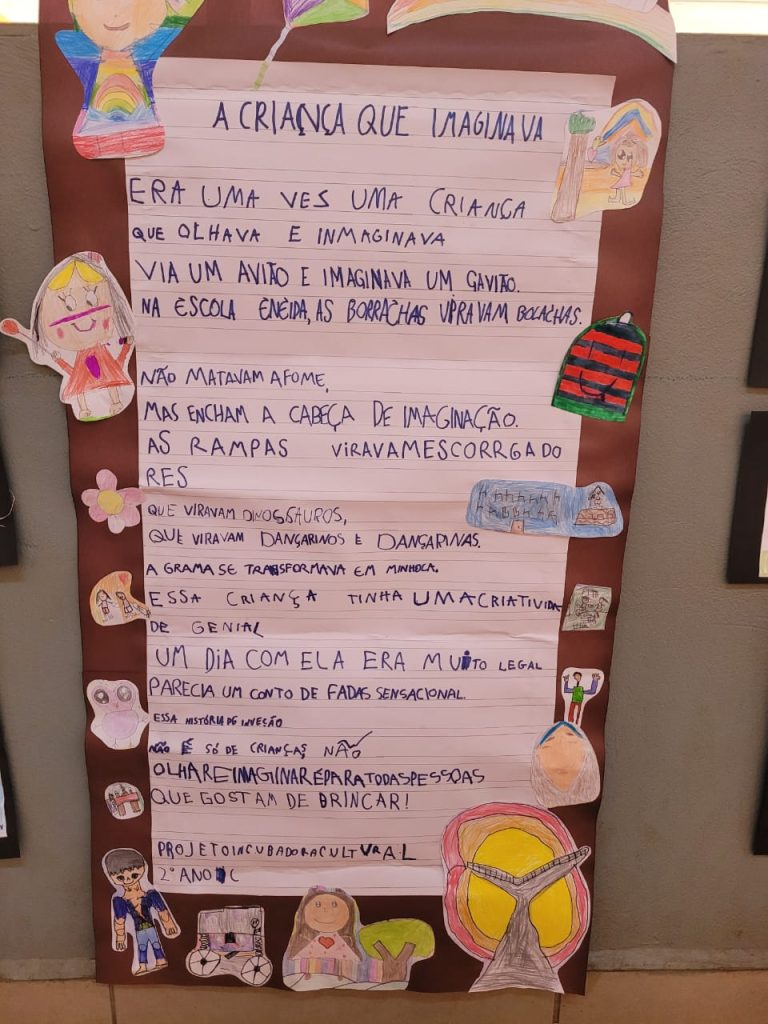 A CRIANÇA QUE IMAGINAVA
ERA UMA VES UMA CRIANÇA
QUE OLHAVA E INMAGINAVA
VIA UM AVITÃO E IMAGINAVA UM GAVITÃO.
NA ESCOLA ENEIDA, AS BORRACHAS VIRAVAM BOLACHAS.
NÃO MATAVAM A FOME,
MAS ENCHAM A CABEÇA DE IMAGINAÇÃO.
AS RAMPAS VIRAVAM ESCORRGADO
RES
QUE VIRAVAM DINOSSAUROS,
QUE VIRAVAM DANÇARINOS E DANÇARINAS.
A GRAMA SE TRANSFORMAVA EM MINHOCA.
ESSA CRIANÇA TINHA UMA CRIATIVIDA
DE GENIAL
UM DIA COM ELA ERA MUITO LEGAL
PARECIA UM CONTO DE FADAS SENSACIONAL.
ESSA HISTÓRIA DE INVESÃO
NÃO É SÓ DE CRIANÇAS NÃO
OLHAR E IMAGINAR É PARA TODAS PESSOAS
QUE GOSTAM DE BRINCAR!
PROJETO INCUBADORA CULTURAL
2° ANO C